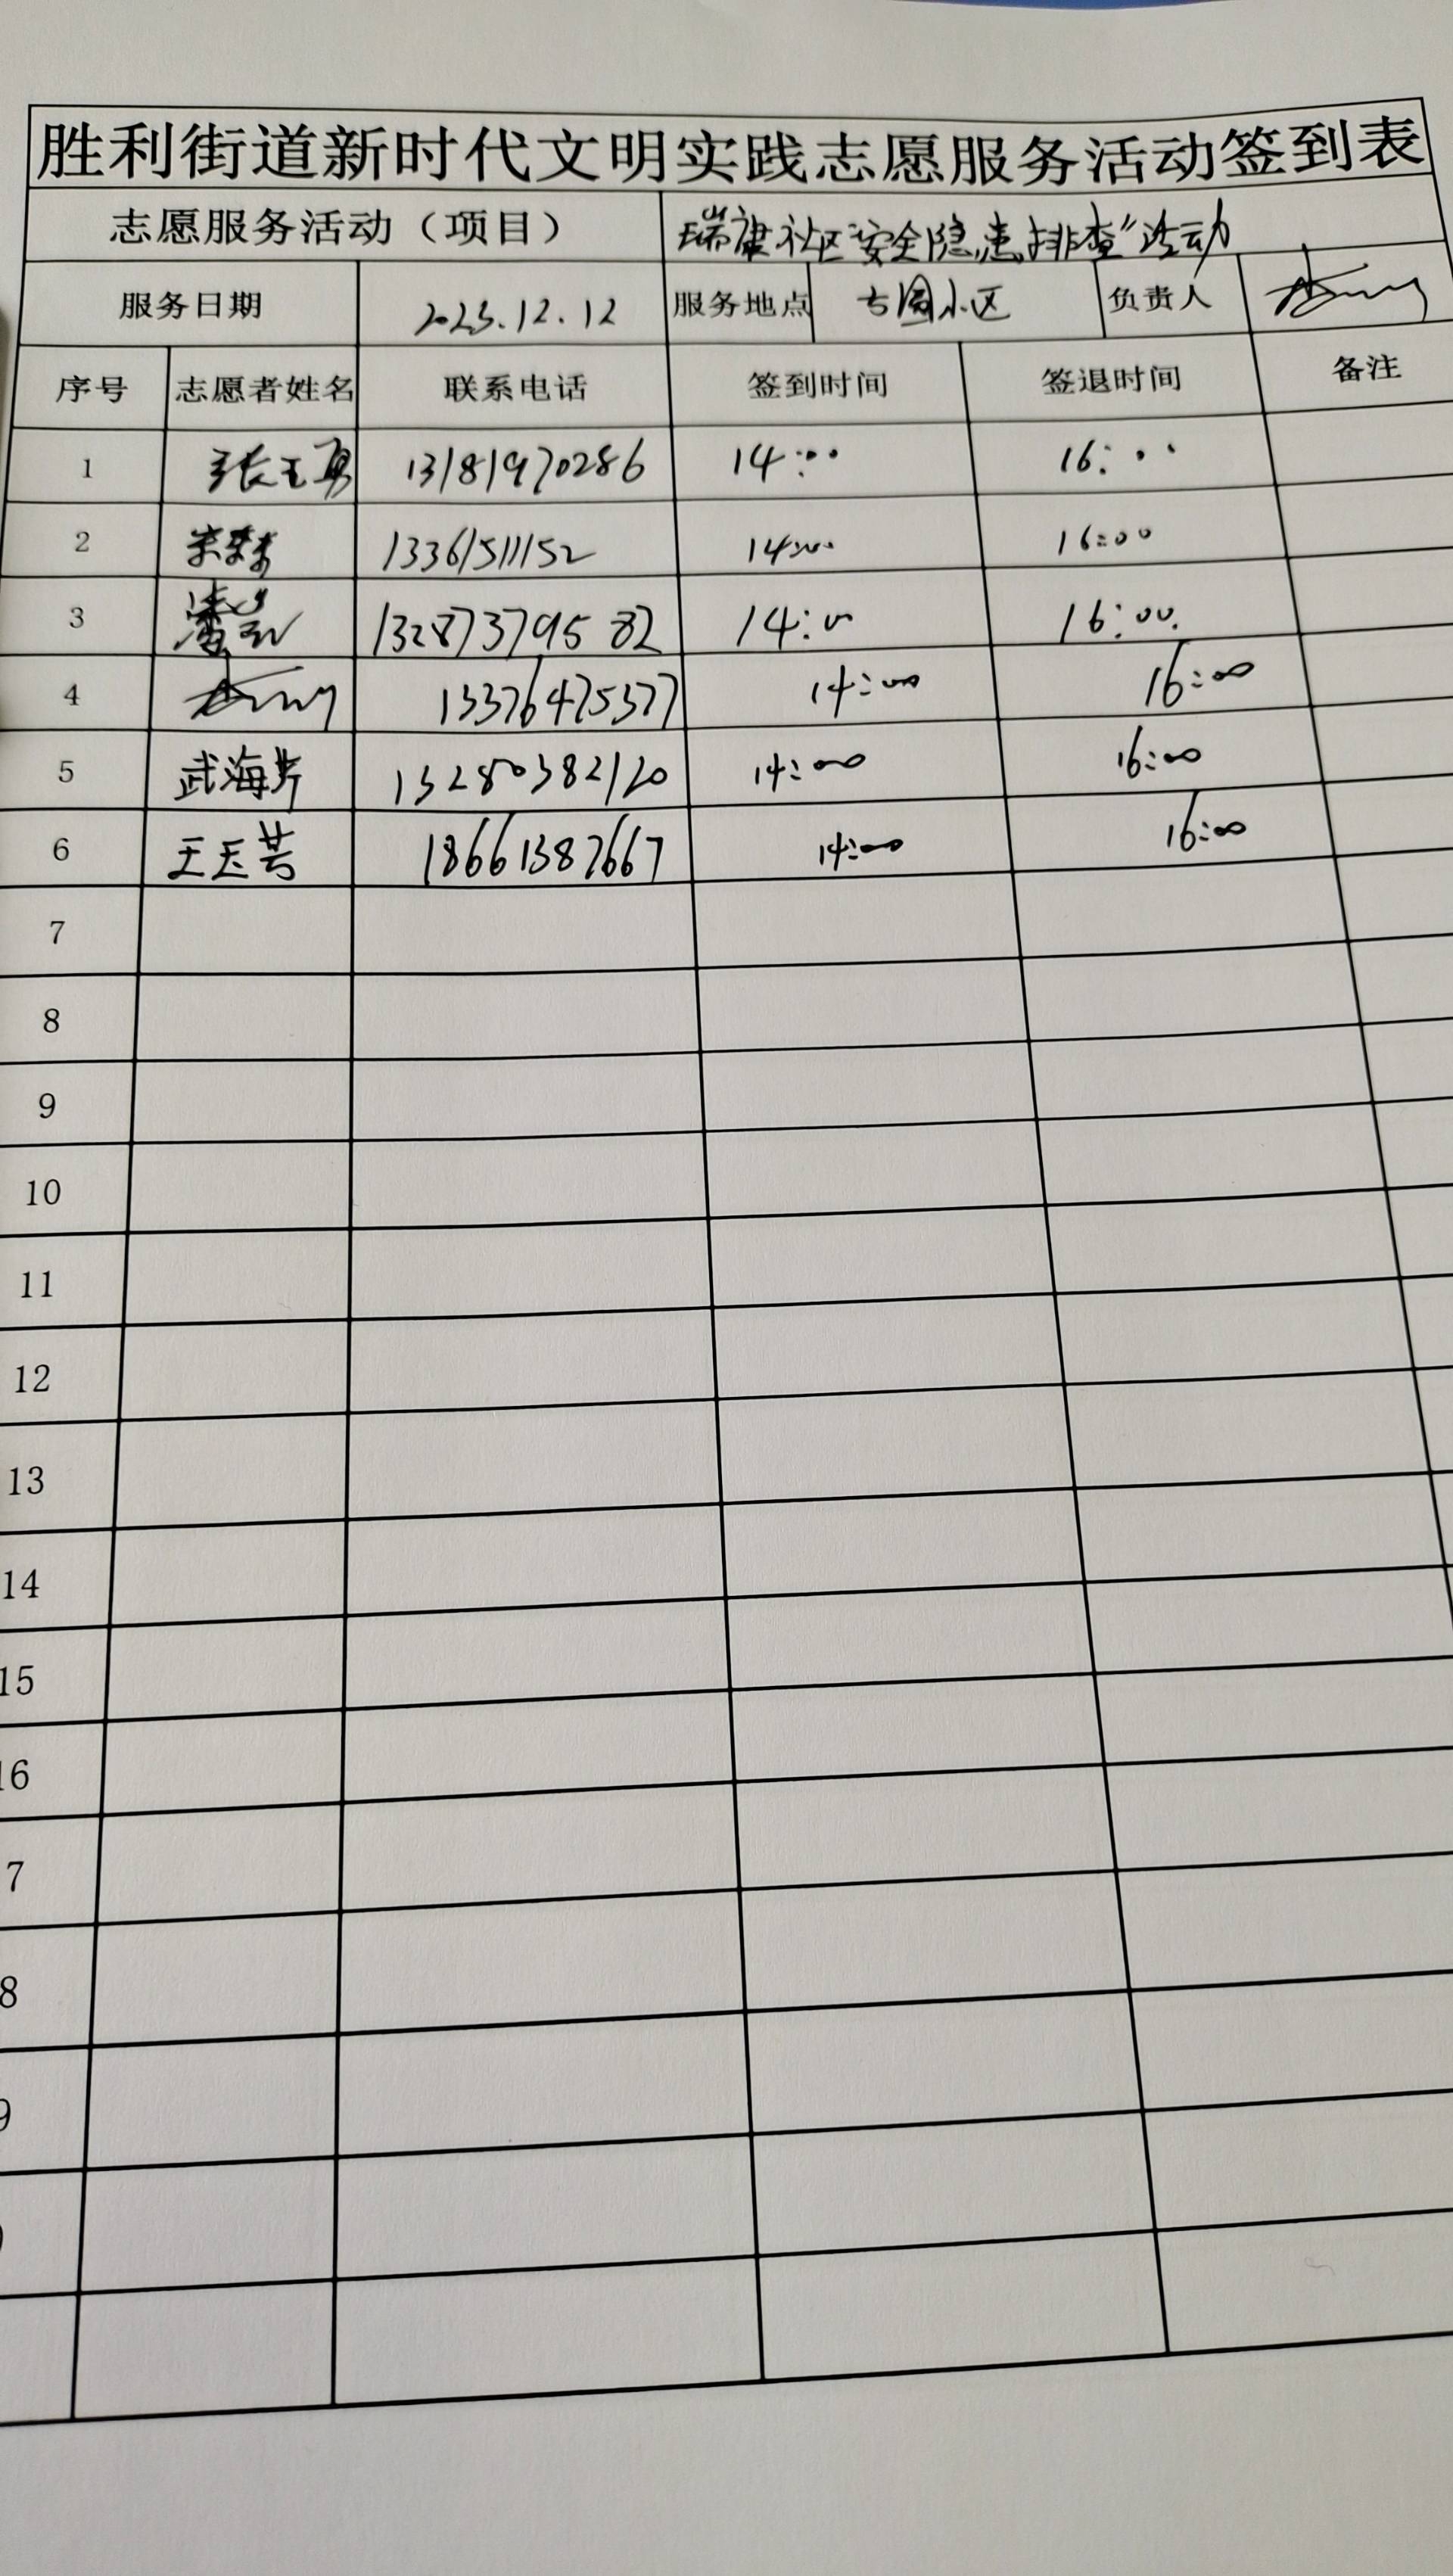 胜利街道新时代文明实践志愿服务活动签到表
志愿服务活动（项目） 瑞康社区“安全隐患排查”活动
服务日期 2025.12.12 服务地点 小区 负责人
序号 志愿者姓名 联系电话 签到时间 签退时间 备注
1 张玉勇 13181970286 14:00 16:00
2 13361511152 14:00 16:00
3 13287379582 14:00 16:00
4 13376475377 14:00 16:00
5 武海燕 13280382120 14:00 16:00
6 王玉芳 18661387667 14:00 16:00
7
8
9
10
11
12
13
14
15
16
7
8
9